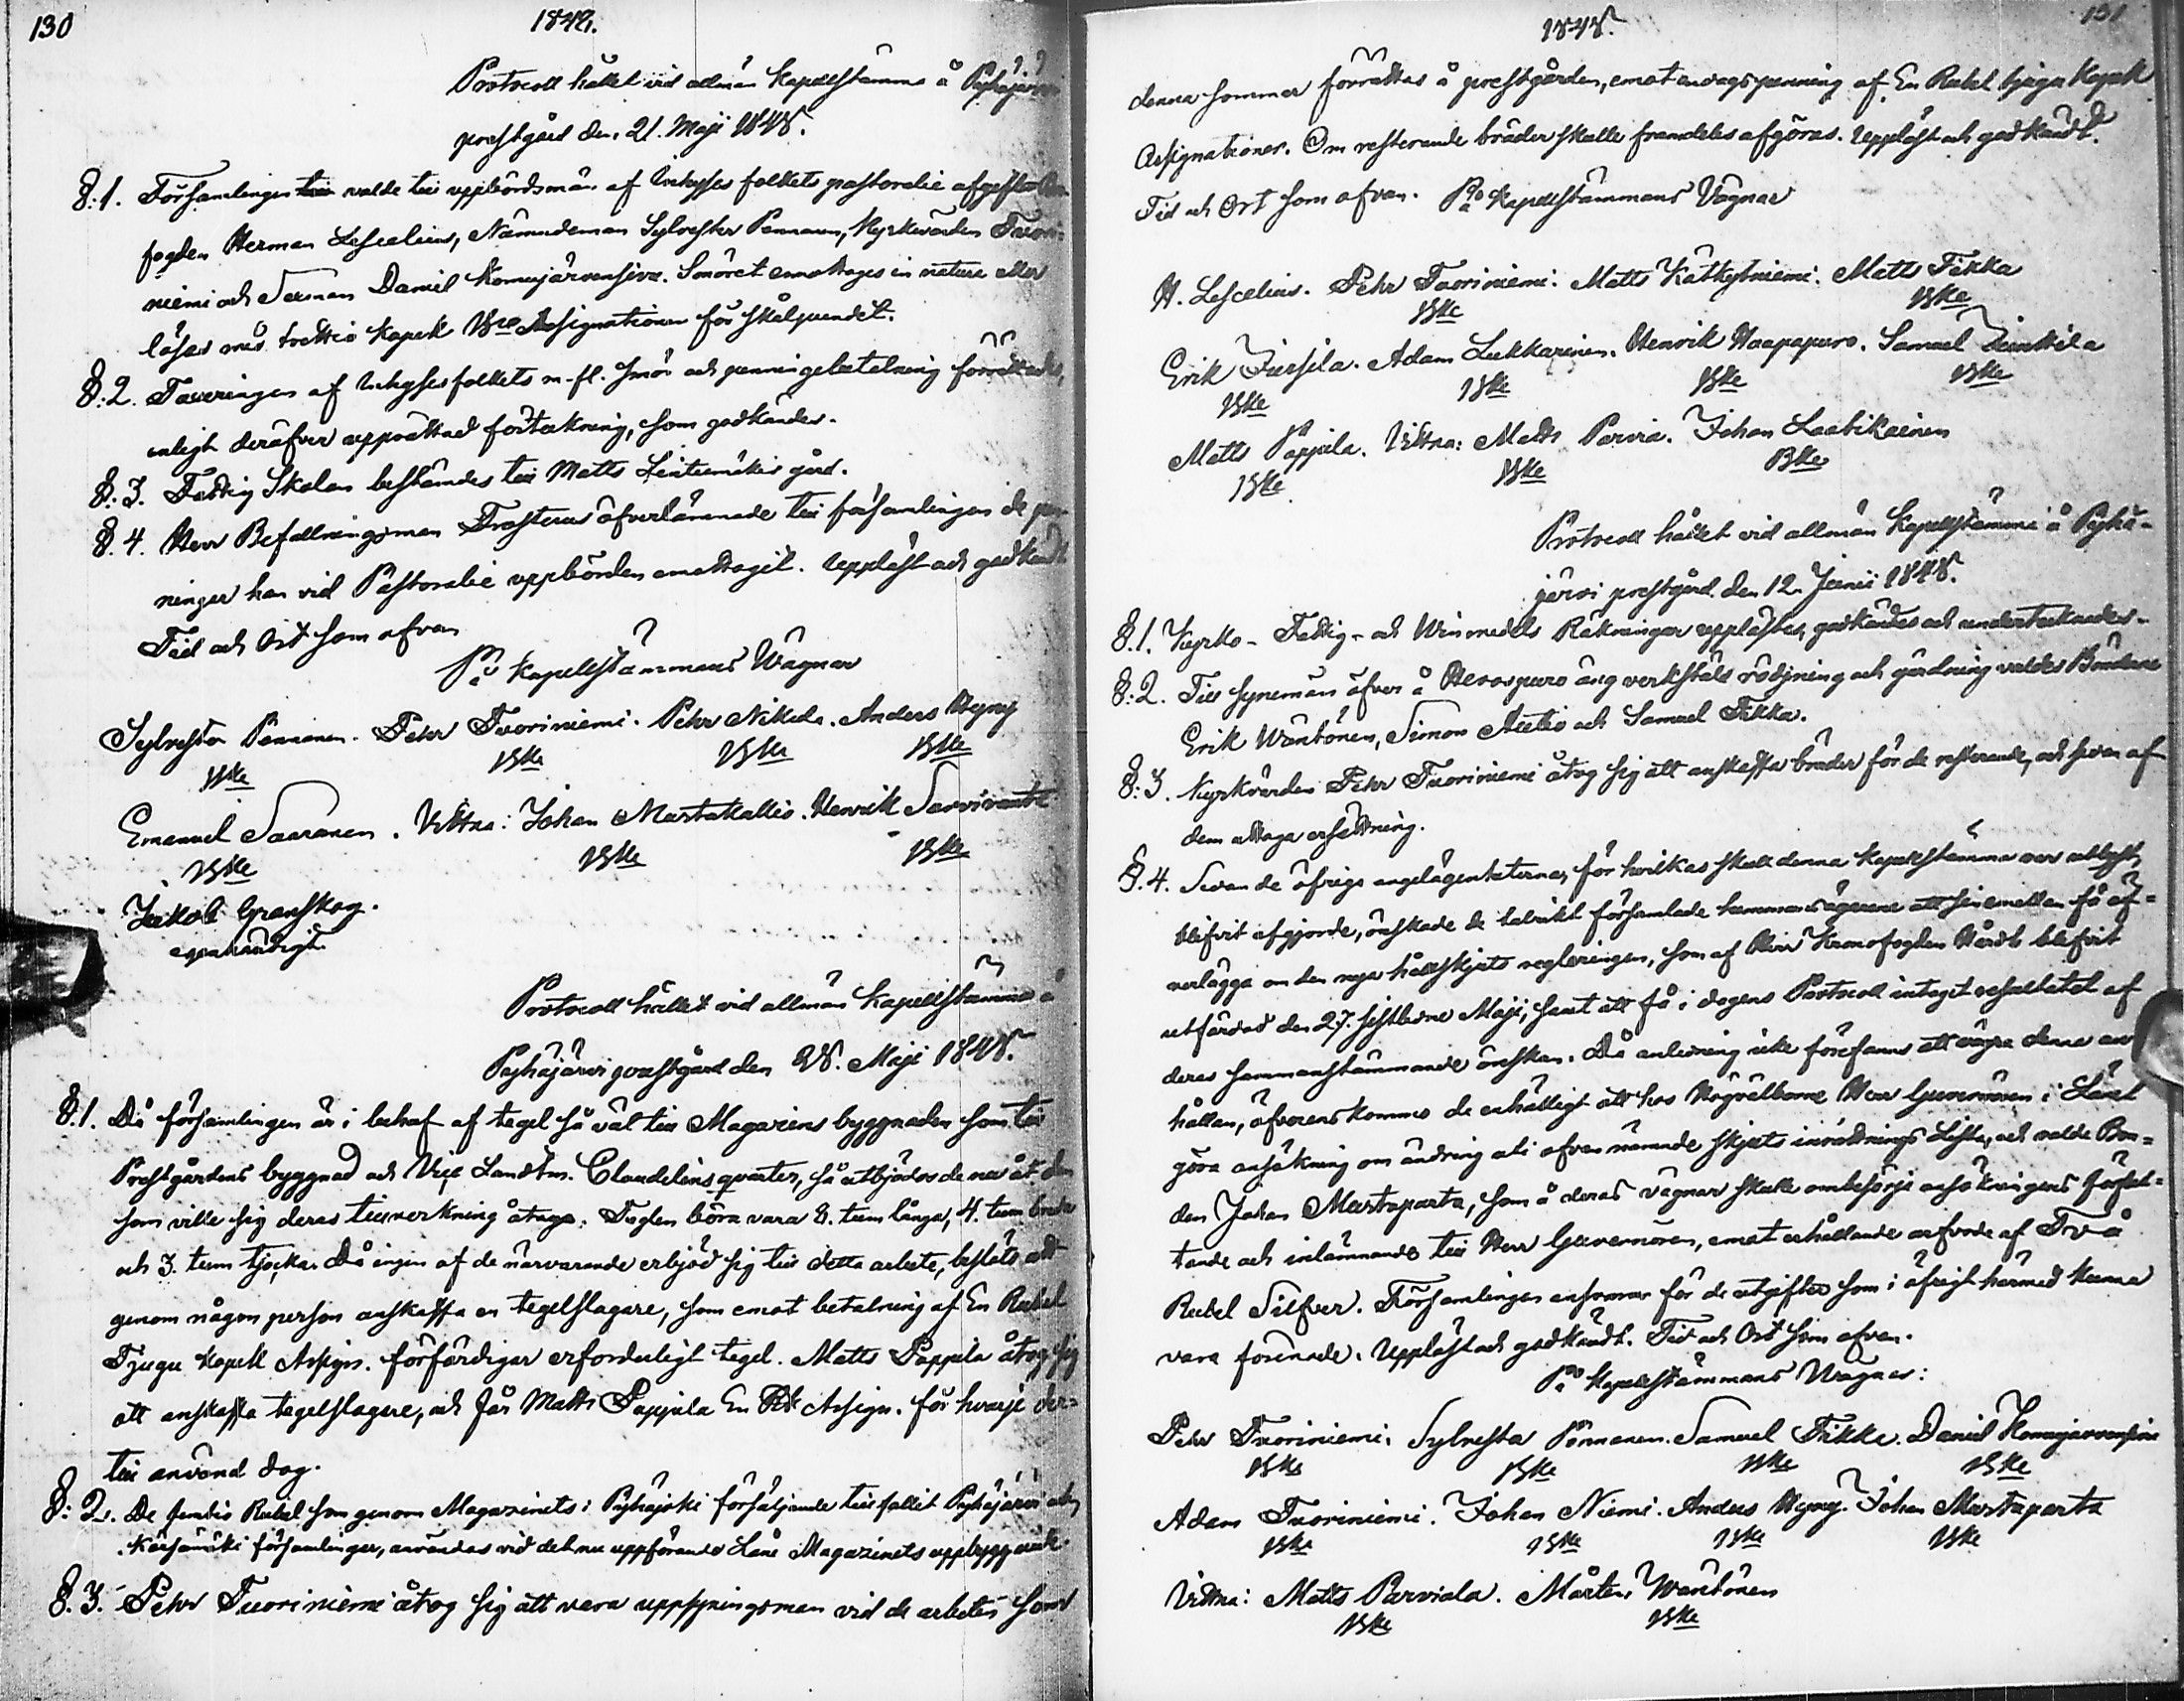 130
1848.
Protocoll hållet vid allmän Kapellstämma å Pyhäjärvi
prestgård den 21. Maji 1848.
§:1. Församlingen till valde till uppbördsmän af Inhyses folkets pastoralie afgifter
fogden Herman Lescelius, Nämndeman Sylvester Pennanen, Kyrkvärden Tuori-
niemi och Sexman Daniel Komujärvensivu. Smöret emottages in natura eller
löses med trettio Kopek Bco Assignationer för skålpundet.
§:2. Taxeringen af Inhysesfolkets m. fl. smör och penningebetalning förrättades,
enligt deröfver upprättad förtekning, som godkändes.
§:3. Fattig Skolan bestämdes till Matts Lintumäkis gård.
§.4. Herr Befallningsman Frosterus öfverlämnade till församlingen de pen-
ningar han vid Pastoralie uppbörden emottagit. Uppläst och godkändt
Tid och Ort som ofvan
På Kapellstämmans Wägnar
Sylvester Pennanen. Pehr Tuoriniemi. Pehr Nikula. Anders Hyny
Bmke Bmke Bmke Bmke
Emanuel Saaranen. Vittna: Johan Mustakallio. Henrik Sarviranta
Bmke Bmke Bmke
Jakob Granskog.
egenhändigt
Protocoll hållet vid allmän Kapellstämma å
Pyhäjärvi prestgård den 28. Maji 1848.
§.1. Då församlingen är i behof af tegel så väl till Magazins byggnaden som till
Prestgårdens byggnad och Vice Landtm. Claudelins qvarter, så utbjödos de nu åt den
som ville sig deras tillverkning åtaga. Teglen böra vara 8. tum långa, 4. tum breda
och 3. tum tjocka. Då ingen af de närvarande erbjöd sig till detta arbete, beslöts att
genom någon person anskaffa en tegelslagare, som emot betalning af En Rubel
Tjugu Kopek Assign. förfärdigar erforderligt tegel. Matts Pappila åtog sig
att anskaffa tegelslagare, och får Matts Pappila En Rub. Assign. för hvarje der-
till använd dag.
§:2. De femtio Rubel som genom Magazinets i Pyhäjoki försäljande tillfallit Pyhäjärvi och
Kärsämäki församlingar, användas vid det nu uppförande Låne Magazinets uppbyggande.
§.3. Pehr Tuoriniemi åtog sig att vara uppsyningsman vid de arbeten som
131
1848.
denna sommar förrättas å prestgården, emot en dagspenning af En Rubel tjugu Kopek
Assignationer. Om resterande bräder skulle framdeles afgöras. Uppläst och godkändt.
Tid och Ort som ofvan. På Kapellstämmans Vägnar
H. Lescelius. Pehr Tuoriniemi. Matts Kätkytniemi. Matts Tikka
Bmke Bmke
Erik Jursila. Adam Lukkarinen. Henrik Haapapuro. Samuel Junttila
Bmke Bmke Bmke Bmke
Matts Pappila. Vittna: Matts Parvia. Johan Laatikainen
Bmke Bmke Bmke
Protocoll hållet vid allmän Kapellstämma å Pyhä-
järvi prestgård den 12. Junii 1848.
§.1. Kyrko- Fattig- och Winmedels Räkningar upplästes, godkändes och undertecknades.
§:2. Till synemän öfver å Hevospuro äng verkstäld rödjning och gärdning valdes Bönderne
Erik Wäntönen, Simon Autio och Samuel Tikka.
§:3. Kyrkvärden Pehr Tuoriniemi åtog sig att anskaffa bräder för de resterande, och sedan af
dem uttaga ersättning.
§.4. Sedan de öfriga angelägenheterna, för hvilkas skull denna Kapellstämma var utlyst,
blifvit afgjorde, önskade de talrikt församlade hemmansägarene att sinsemellan få öf-
verlägga om den nya hållskjuts regleringen, som af Herr Kronofogden Hårdh blifvit
utfärdad den 27. sistledne Maji, samt att få i dagens Protocoll intaget resultatet af
deras sammanstämmande önskan. Då anledning icke förefanns att vägra denna an-
hållan, öfverenskommo de enhälligt att hos Högvälborne Herr Guvernören i Länet
göra ansökning om ändring uti ofvan nämnde skjuts inrättnings Lista, och valde Bon-
den Johan Mustaparta, som å deras vägnar skulle ombesörja ansökningens författ-
tande och inlämnande till Herr Guvernören, emot erhållande arfvode af Två
Rubel Silfver. Församlingen ansvarar för de utgifter som i öfrigt härmed kunna
vara förenade. Uppläst och godkändt. Tid och Ort som ofvan.
På Kapellstämmans Wägnar:
Pehr Tuoriniemi. Sylvester Pennanen. Samuel Tikka. Daniel Komujärvensivu
Bmke Bmke Bmke Bmke
Adam Tuoriniemi. Johan Niemi. Anders Hyny. Johan Mustaparta
Bmke Bmke Bmke Bmke
Vittna: Matts Parviala. Mårten Wäntönen
Bmke Bmke